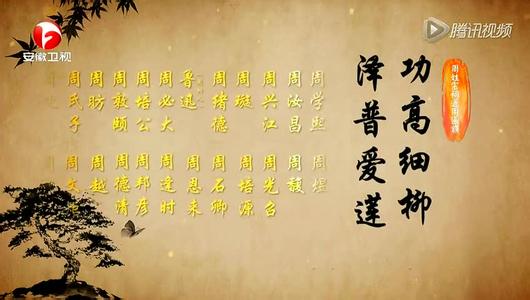 安徽卫视
腾讯视频
周姓宗祠通用楹联
功高细柳
泽普爱莲
周学熙
周汝昌
周兴江
周璇
鲁迅
周必大
周培公
周敦颐
周昉
周氏子
周煌
周馥
周光召
周培源
周石卿
周恩来
周逢时
周邦彦
周德清
周越